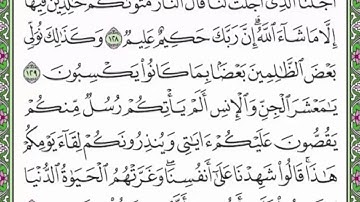 أَجَلَنَا ٱلَّذِىٓ أَجَّلْتَ لَنَا ۚ قَالَ ٱلنَّارُ مَثْوَىٰكُمْ خَٰلِدِينَ فِيهَآ
إِلَّا مَا شَآءَ ٱللَّهُ ۗ إِنَّ رَبَّكَ حَكِيمٌ عَلِيمٌ ١٢٨ وَكَذَٰلِكَ نُوَلِّى
بَعْضَ ٱلظَّٰلِمِينَ بَعْضًۢا بِمَا كَانُوا۟ يَكْسِبُونَ ١٢٩
يَٰمَعْشَرَ ٱلْجِنِّ وَٱلْإِنسِ أَلَمْ يَأْتِكُمْ رُسُلٌ مِّنكُمْ
يَقُصُّونَ عَلَيْكُمْ ءَايَٰتِى وَيُنذِرُونَكُمْ لِقَآءَ يَوْمِكُمْ
هَٰذَا ۚ قَالُوا۟ شَهِدْنَا عَلَىٰٓ أَنفُسِنَا ۖ وَغَرَّتْهُمُ ٱلْحَيَوٰةُ ٱلدُّنْيَا